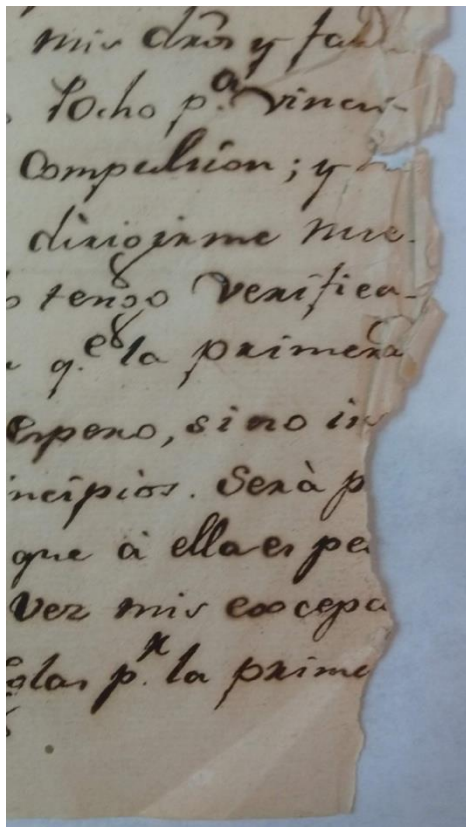 mis dros y fal
Ocho p.a vincu-
Compulsion; y
dirigirme nue.
tengo verifica-
q.e la primera
espero, sino in
ncipios. Será p
que à ella es pe
Ver mis excepc
las p.r la prime